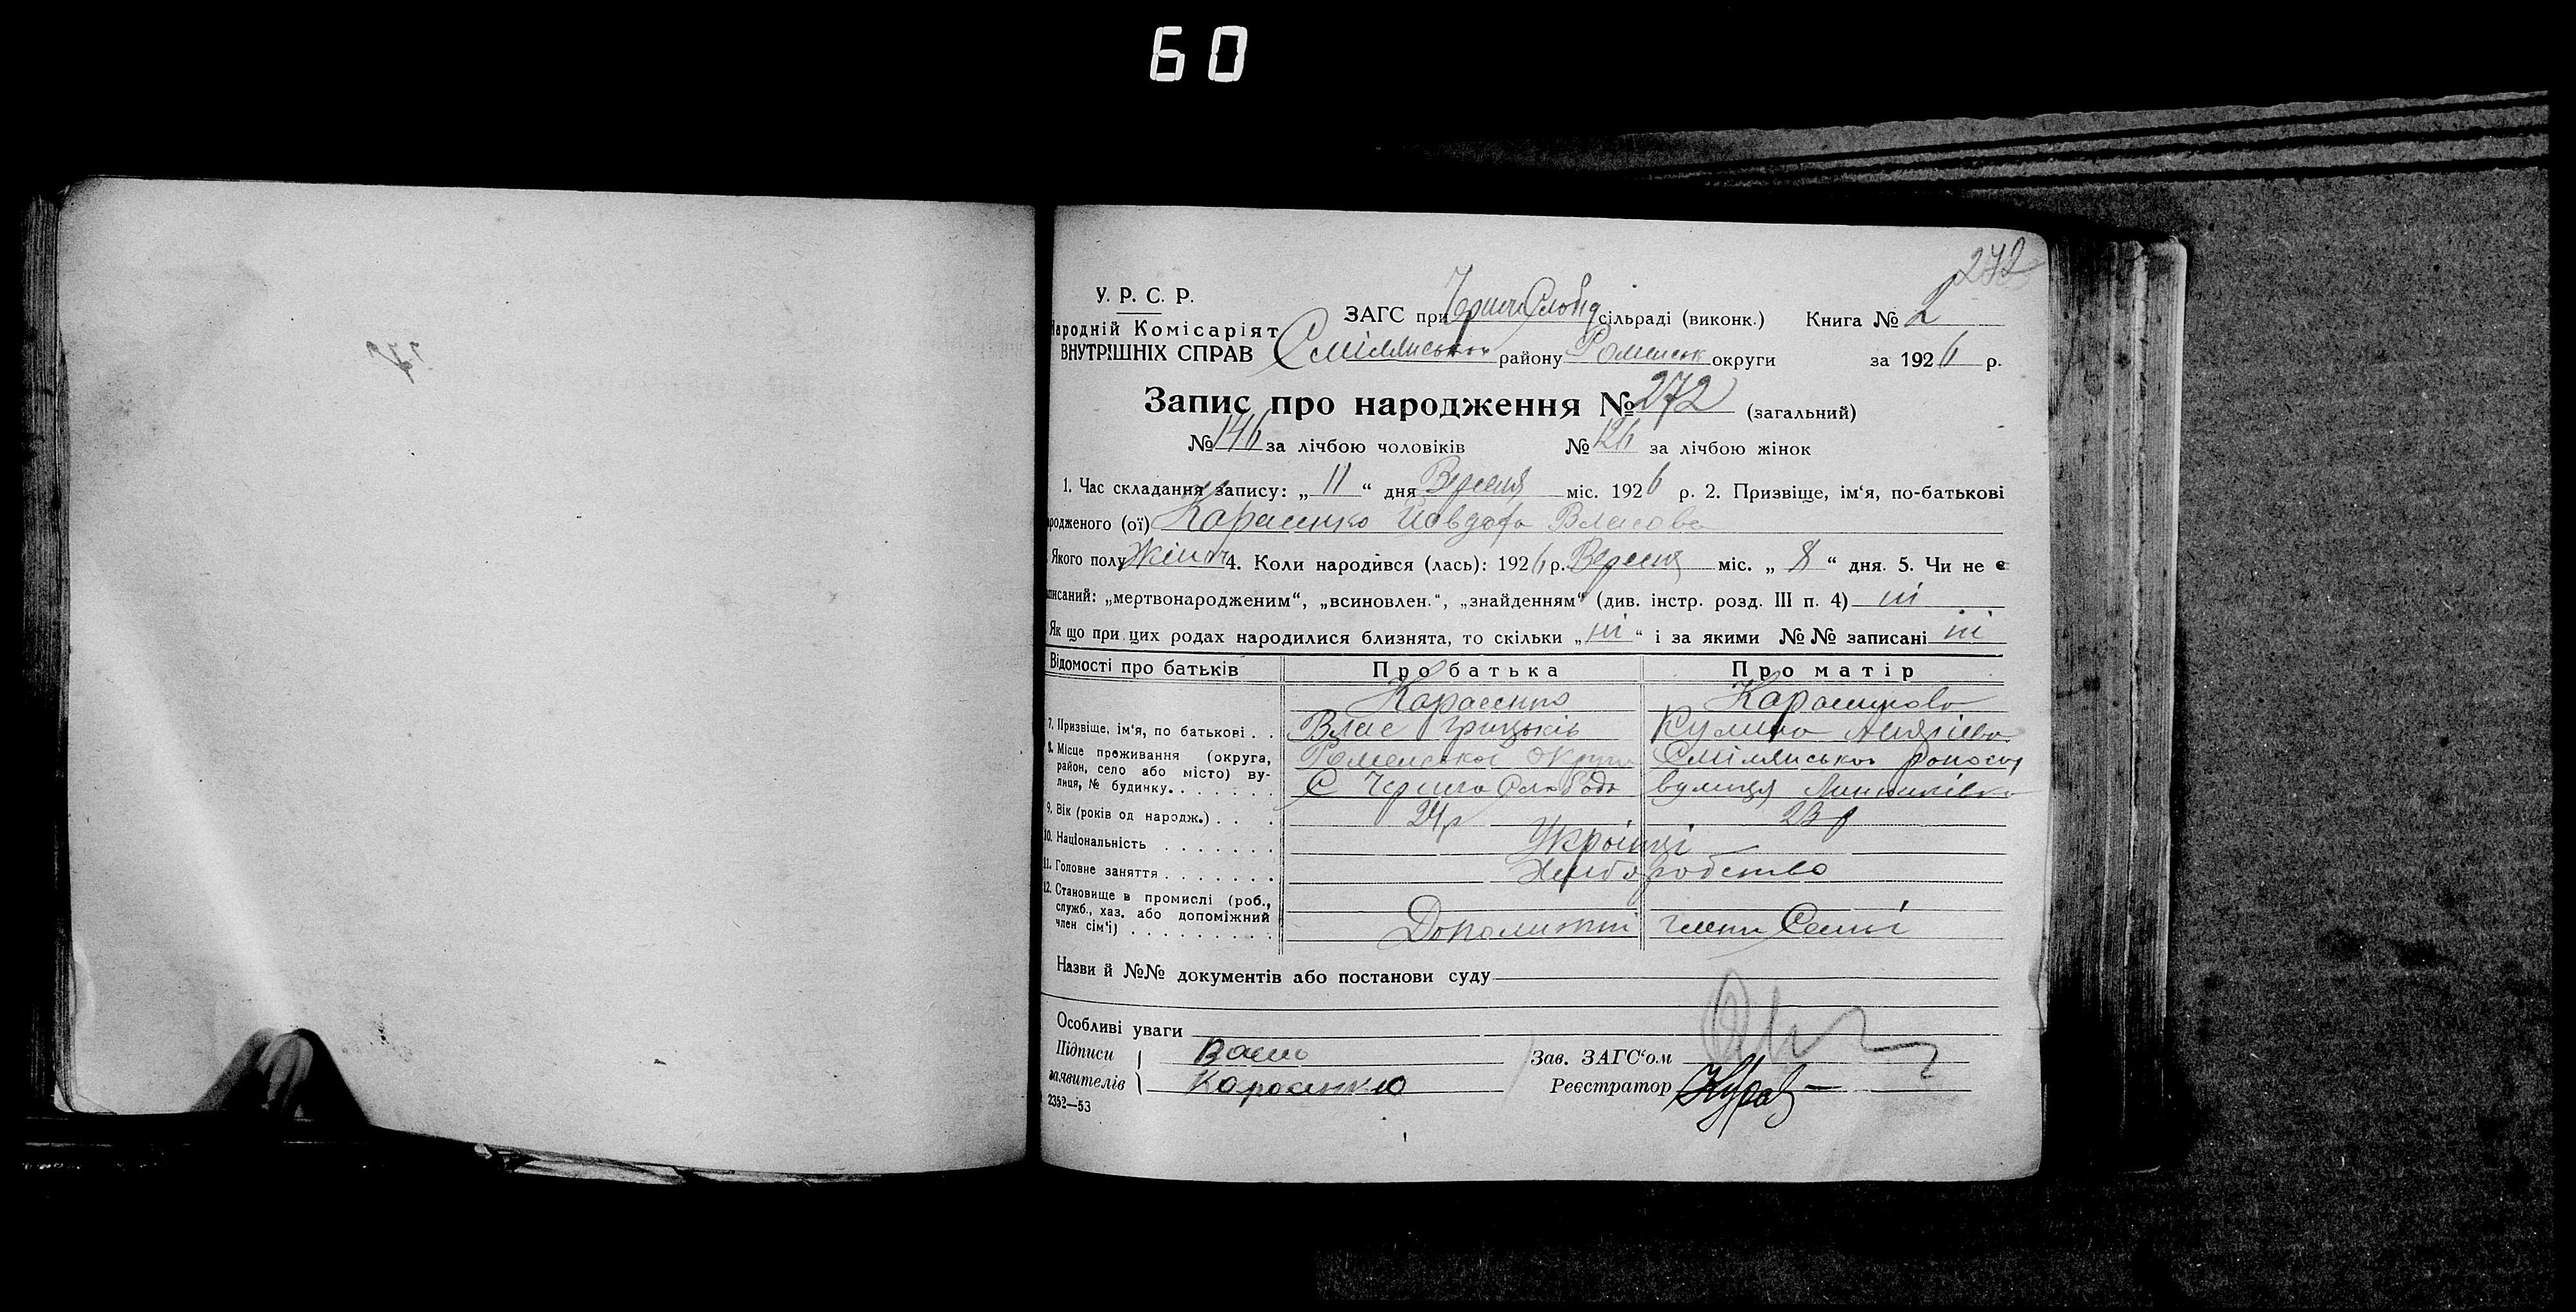 60
272
У. Р. С. Р.
Народній Комісаріят
ВНУТРІШНІХ СПРАВ
ЗАГС при сільраді (виконк.) Книга № 2
району Роменськ округи за 1926 р.
Запис про народження № 272 (загальний)
№ 146 за лічбою чоловіків № 126 за лічбою жінок
1. Час складання запису: „ 11 “ дня Вересня міс. 1926 р. 2. Призвіще, ім‘я, по-батькові
родженого (ої) Карасенко Йовдоха Власова
Якого полу Жіноч 4. Коли народився (лась): 1926 р. Вересня міс. „ 8 “ дня. 5. Чи не є
записаний: „мертвонародженим“, „всиновлен.“, „знайденням“ (див. інстр. розд. III п. 4) ні
Як що при цих родах народилися близнята, то скільки „ ні “ і за якими №№ записані ні
Відомості про батьків Про батька Про матір
Карасенко
7. Призвіще, ім‘я, по батькові . . Влас Грицьків Кулина
8. Місце проживання (округа, Роменської Округи Смілянського Району
район, село або місто) ву-
лиця, № будинку. . . . . . . С Черпча Слобода вулиця
9. Вік (років од народж.) . . . 24 р 23 р
10. Національність . . . . . . . Українці
11. Головне заняття . . . . . . . Хлиборобство
12. Становище в промислі (роб.,
служб., хаз. або допоміжний
член сім‘ї) . . . . . . . . . члени Семьї
Назви й №№ документів або постанови суду
Особливі уваги
Підписи Зав. ЗАГС‘ом
заявителів Карасенко Реєстратор
2352—53